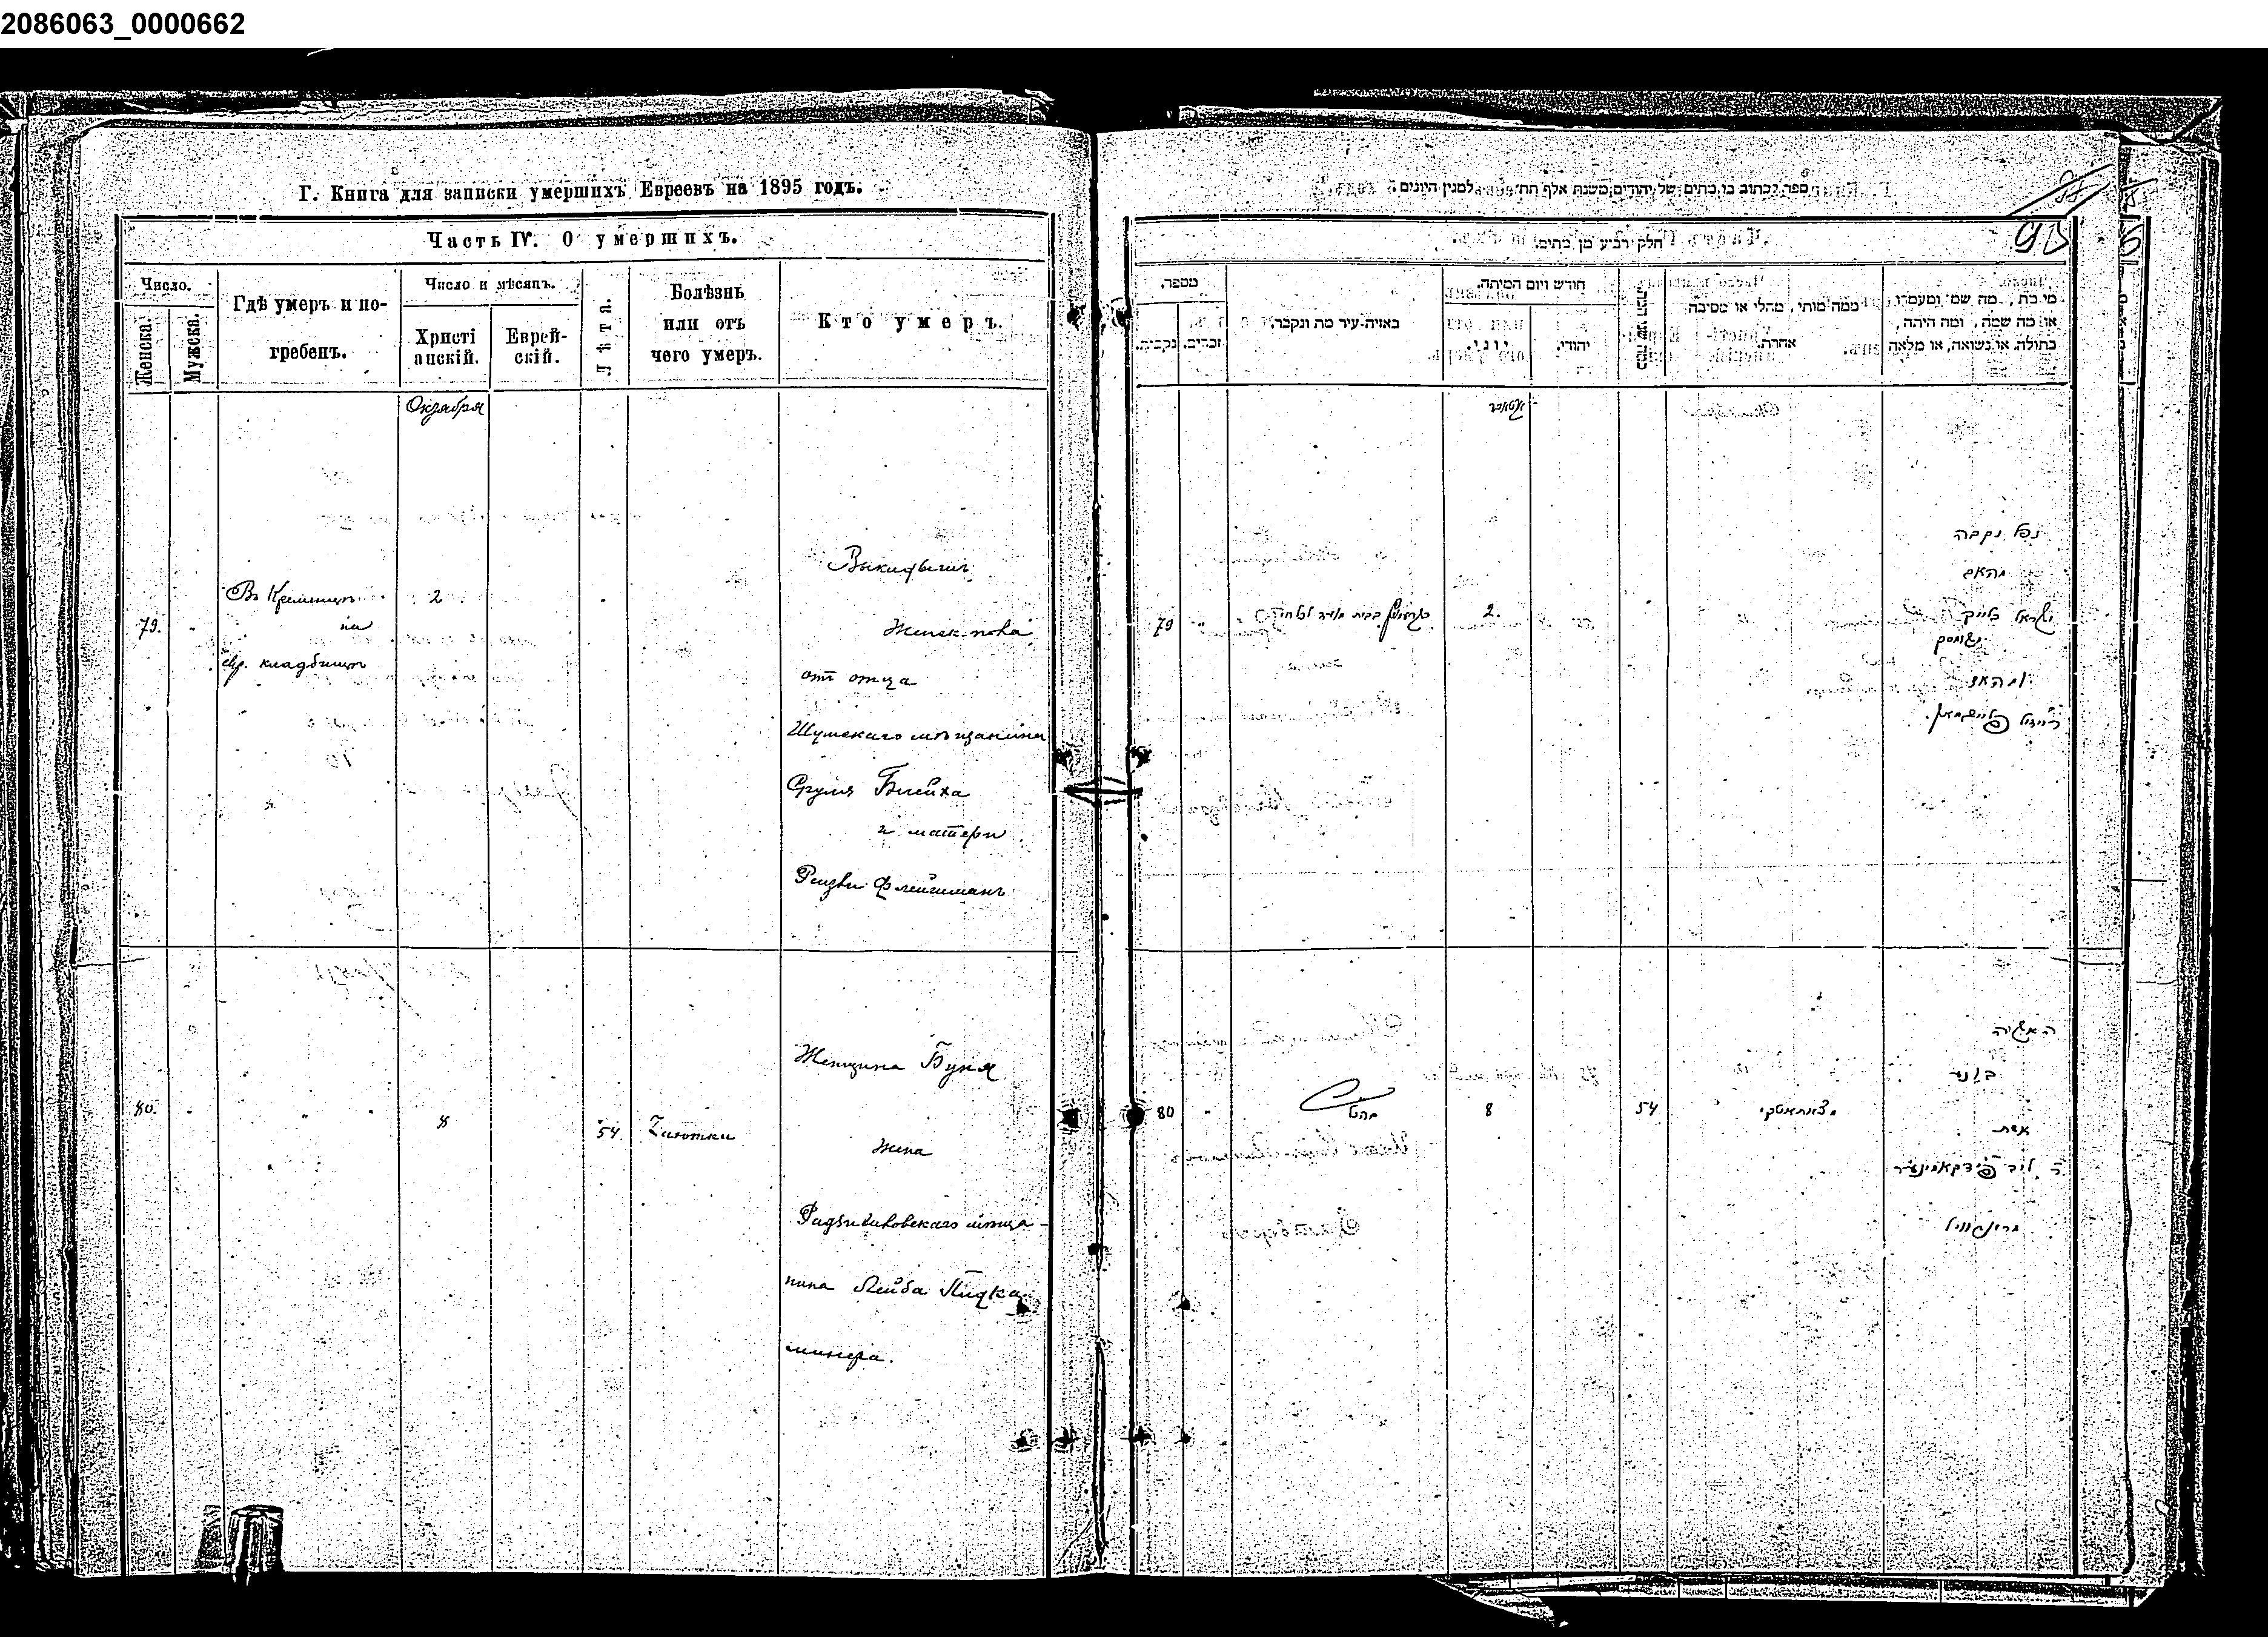 2086063_0000662
Г. Книга для записки умершихъ Евреевъ на 1895 годъ.
Часть IV. О умершихъ.
Число.
Женска.
Мужска.
Гдѣ умеръ и по-
гребенъ.
Число и мѣсяцъ.
Христі
анскій.
Еврей-
скій.
Лѣта.
Болѣзнь
или отъ
чего умеръ.
Кто умеръ.
Октября
79.
Въ Кременцѣ
на
евр. кладбищѣ
2
Выкидышъ
Женск. пола
отъ отца
Шумскаго мѣщанина
Сруля Блейха
и матери
Рейзи Флейшманъ
80.
"
8
54
Чахотки
Женщина Буня
Жена
Радзивиловскаго мѣща-
нина Лейба Пидка
минера.
ספר לכתוב בו מתים של יהודים משנת אלף תת למנין היונים.
חלק רביע מן מתים.
מספר.
נקבות.
זכרים.
באיזה עיר מת ונקבר.
חודש ויום המיתה.
יוני.
יהודי.
ממה מותו, מחלי או מסיבה
אחרת.
מי מת, מה שמו ומעמדו
או מה שמה, ומה היתה,
בתולה, או נשואה, או מלאה
79
"
2.
נפל נקבה
מהאב
ישראל בלייך
ומהאם
רייזל פליישמאן.
80
"
8
54
האשה
בוניא
אשת
ר' ליב פידקאמינער